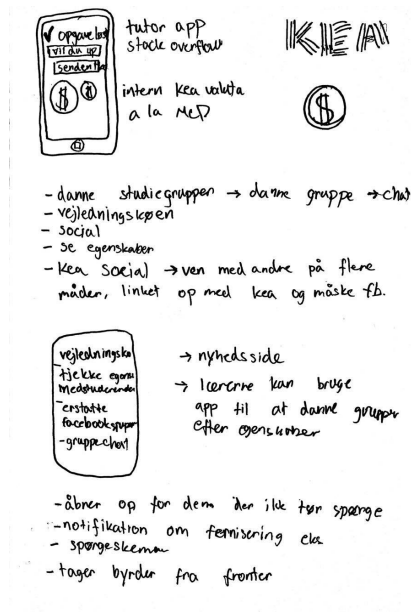 ✓ opgave løst
vil du op
senden til
$ $
tutor app
stack overflow
intern kea valuta
a la McD
KEA
$
- danne studiegrupper → danne gruppe → chat
- vejledningskøen
- social
- se egenskaber
- Kea social → ven med andre på flere
måder, linket op med kea og måske fb.
vejledningskø
- tjekke egens
medstuderendes
- erstatte
facebookgrupper
- gruppechat
→ nyhedsside
→ lærerne kan bruge
app til at danne grupper
efter egenskaber
- åbner op for dem der ikk tør spørge
- notifikation om fernisering eks.
- spørgeskemaer
- tager byrder fra fronter